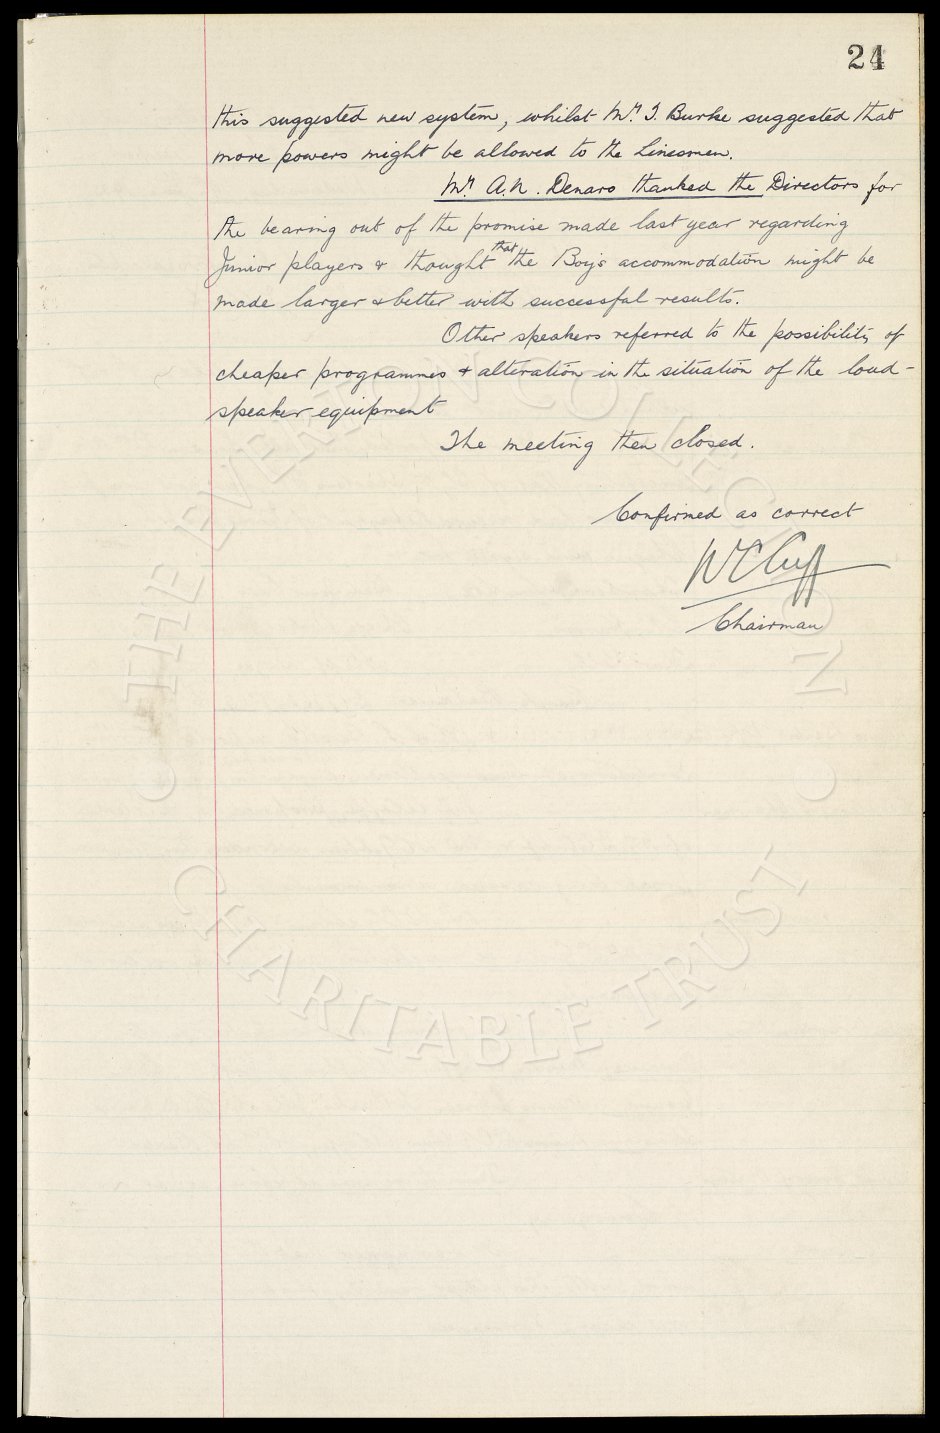 24
this suggested new system, whilst Mr. T. Burke suggested that
more powers might be allowed to the Linesmen.
Mr. A. N. Denaro thanked the Directors for
the bearing out of the promise made last year regarding
Junior players & thought that the Boys accommodation might be
made larger & better with successful results.
Other speakers referred to the possibility of
cheaper programmes & alteration in the situation of the loud-
speaker equipment
The meeting then closed.
Confirmed as correct
W C Cuff
Chairman
THE EVERTON COLLECTION
CHARITABLE TRUST